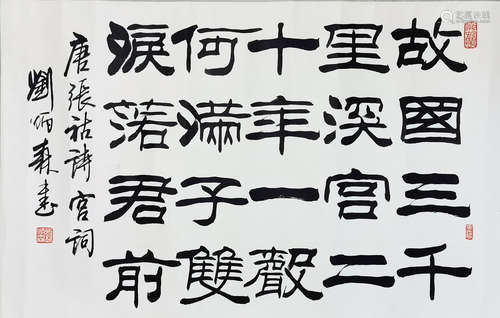 故國三千
里深宮二
十年一聲
何滿子雙
淚落君前
唐張祜詩宮詞
劉炳森書